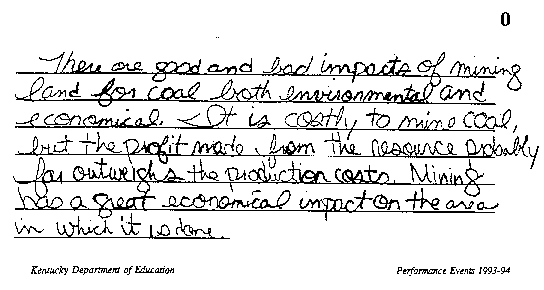 0
There are good and bad impacts of mining
land for coal both environmental and
economical. It is costly to mine coal,
but the profit made from the resource probably
far outweighs the production costs. Mining
has a great economical impact on the area
in which it is done.
Kentucky Department of Education
Performance Events 1993-94